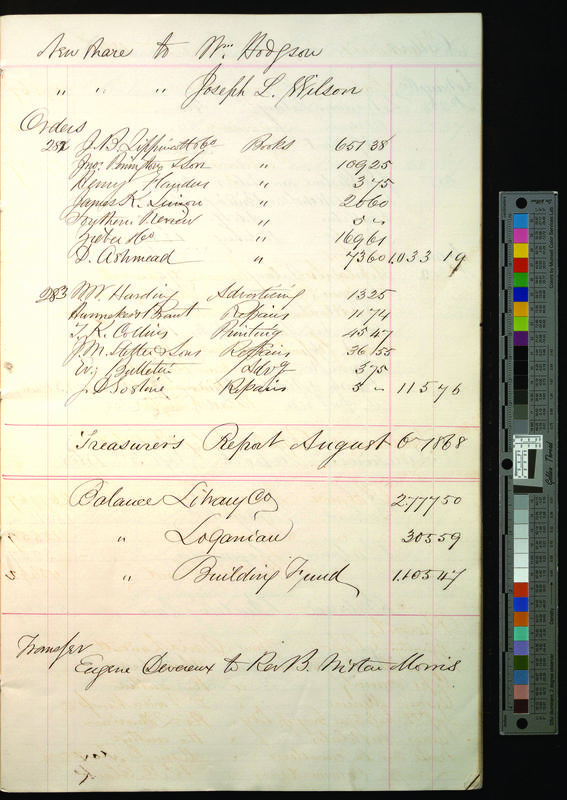 New Share to Wm Hodgson
" " " Joseph L. Wilson
Orders
282 J. B. Lippincott & Co Books 651 38
Jno. Penington & Son " 109 25
Henry " 3 75
James K. Simon " 26 60
Southern Review " 5 "
Zieber & Co " 169 61
D. Ashmead " 73 60 1,033 19
283 W. W. Harding Advertising 13 25
Repairs 11 74
T. K. Collins Printing 45 47
J. M. & Sons Repairs 36 55
Ev'g Bulletin Advg 3 75
J. D. Repairs 5 " 115 76
Treasurer's Report August 6th 1868
Balance Library Co 2,777 50
" Loganian 305 59
" Building Fund 1,105 47
Transfer
Eugene Devereux to Rev B. Wistar Morris